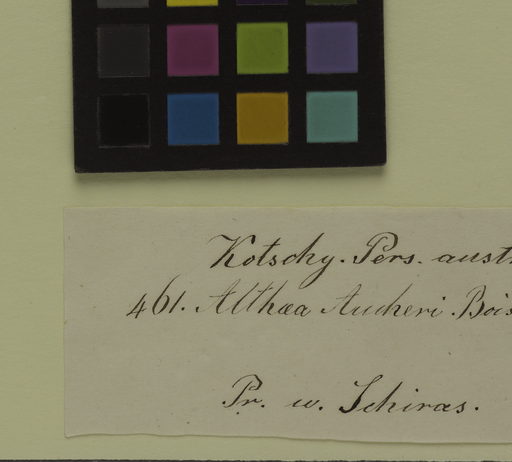 Kotschy. Pers. aust
461. Althæa Aucheri. Bois
Pr. w. Schiras.